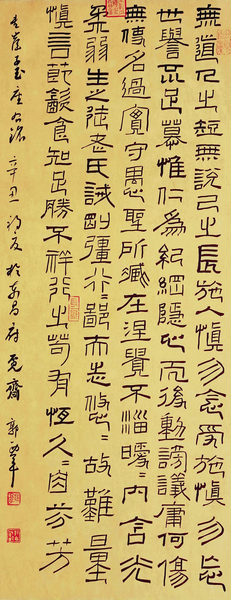 無道人之短無說己之長施人慎勿念受施慎勿忘
世譽不足慕惟仁為紀綱隱心而後動謗議庸何傷
無使名過實守愚聖所臧在涅貴不淄曖〻內含光
柔弱生之徒老氏誡剛彊行〻鄙夫志悠〻故難量
慎言節飲食知足勝不祥行之苟有恆久〻自芬芳
書崔子玉座右銘 辛丑初夏於東昌府 齋 郭